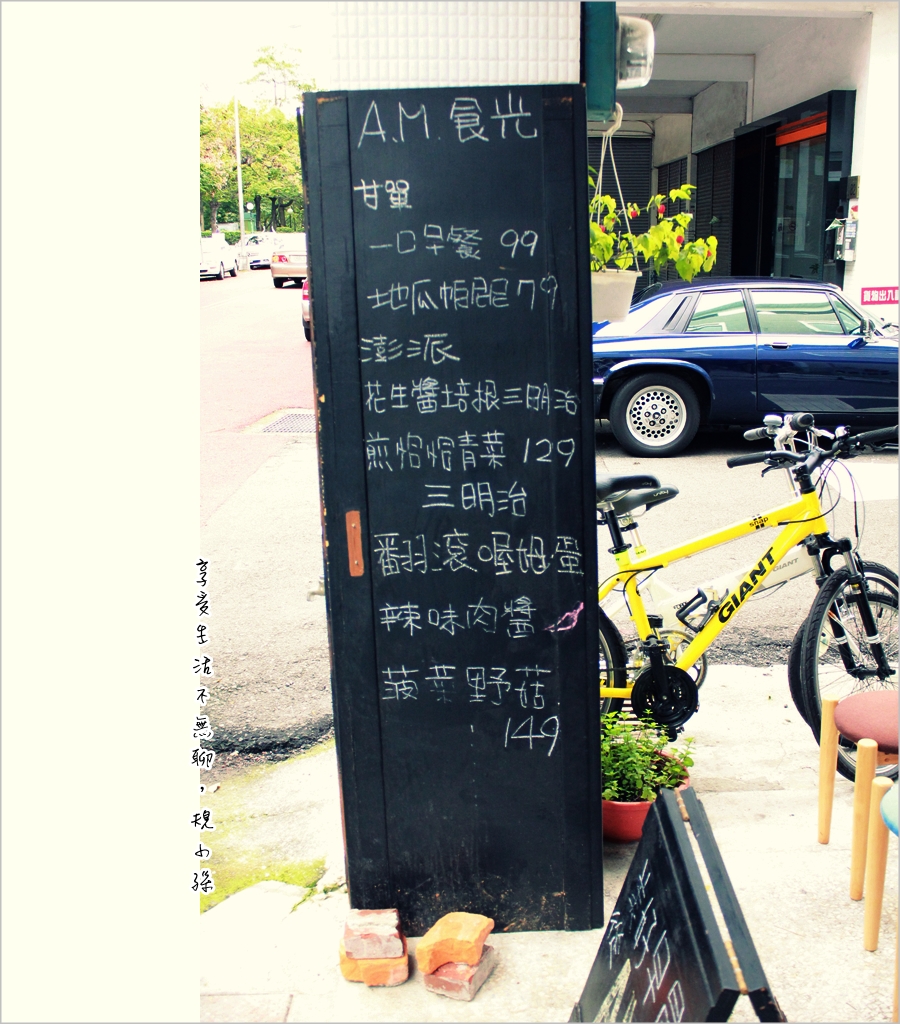 A.M. 食光
甘單
一口早餐 99
地瓜帕尼尼 79
澎派
花生醬培根三明治
煎恰恰青菜 129
三明治
翻滾喔姆蛋
辣味肉醬
菠菜野菇
149
享受生活不無聊，
GIANT
snap
GIANT